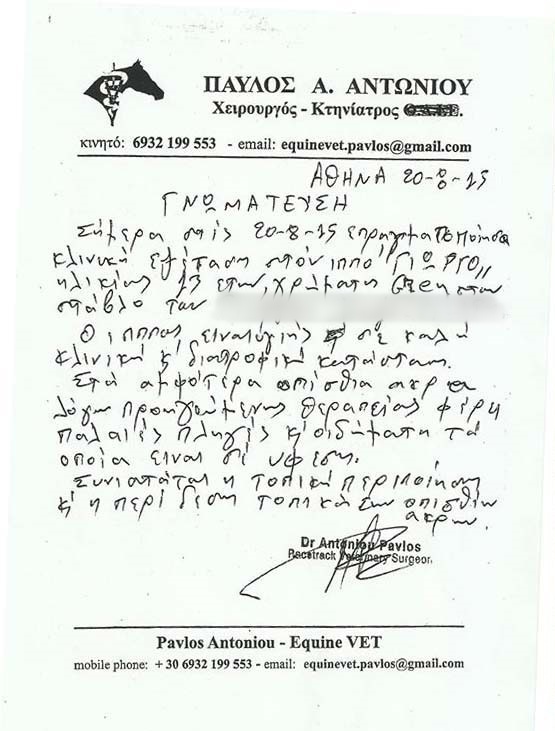 ΠΑΥΛΟΣ Α. ΑΝΤΩΝΙΟΥ
Χειρουργός - Κτηνίατρος
κινητό: 6932 199 553 - email: equinevet.pavlos@gmail.com
ΑΘΗΝΑ 20-8-15
ΓΝΩΜΑΤΕΥΣΗ
Σήμερα στις 20-8-15 επραγματοποίησα
κλινική εξέταση στον ίππο "ΓΙΩΡΓΟ"
ηλικίας 13 ετών, χρώματος Grey στον
στάβλο του
Ο ίππος είναι υγιής σε καλή
κλινική κ' διατροφική κατάσταση.
Στα αμφότερα οπίσθια άκρα
λόγω προηγούμενης θεραπείας φέρη
παλαιές πληγές κ' οιδήματα τα
οποία είναι σε ύφεση.
Συνιστάται η τοπική περιποίηση
κ' η περίδεση τοπικά των οπισθίων
άκρων.
Dr Antoniou Pavlos
Racetrack Veterinary Surgeon
Pavlos Antoniou - Equine VET
mobile phone: + 30 6932 199 553 - email: equinevet.pavlos@gmail.com